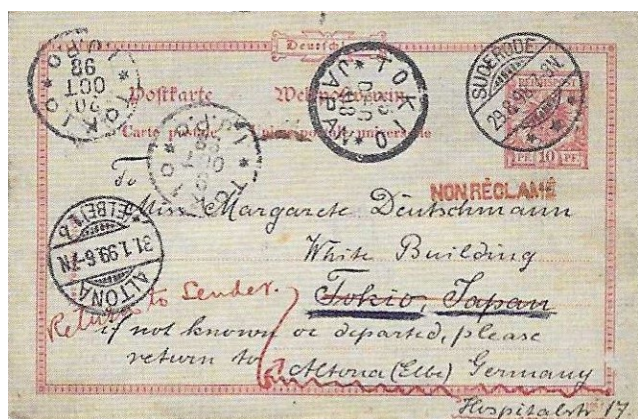 Deutschl
Postkarte Weltpostverein
Carte postale Union postale universelle
REICHSPOST
10
PF. 10 PF.
SUDERODE
29.8.98
TOKIO
JAPAN
I.J.P.O TOKIO
20
OCT
98
I.J.P.O TOKIO
ALTONA
31.1.99.6-7N
(ELBE)
NON RÉCLAMÉ
To
Miss Margarete Deutschmann
White Building
Tokio, Japan
Return to Sender.
if not known or departed, please
return to Altona (Elbe) Germany
Hospitalstr 17